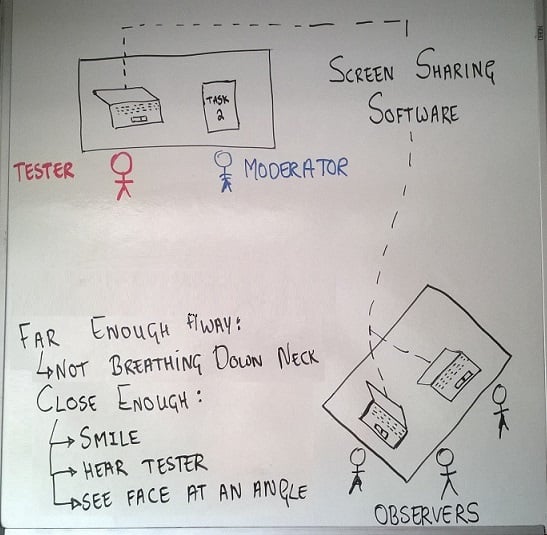 SCREEN SHARING
SOFTWARE
TASK
2
TESTER
MODERATOR
FAR ENOUGH AWAY:
NOT BREATHING DOWN NECK
CLOSE ENOUGH:
SMILE
HEAR TESTER
SEE FACE AT AN ANGLE
OBSERVERS